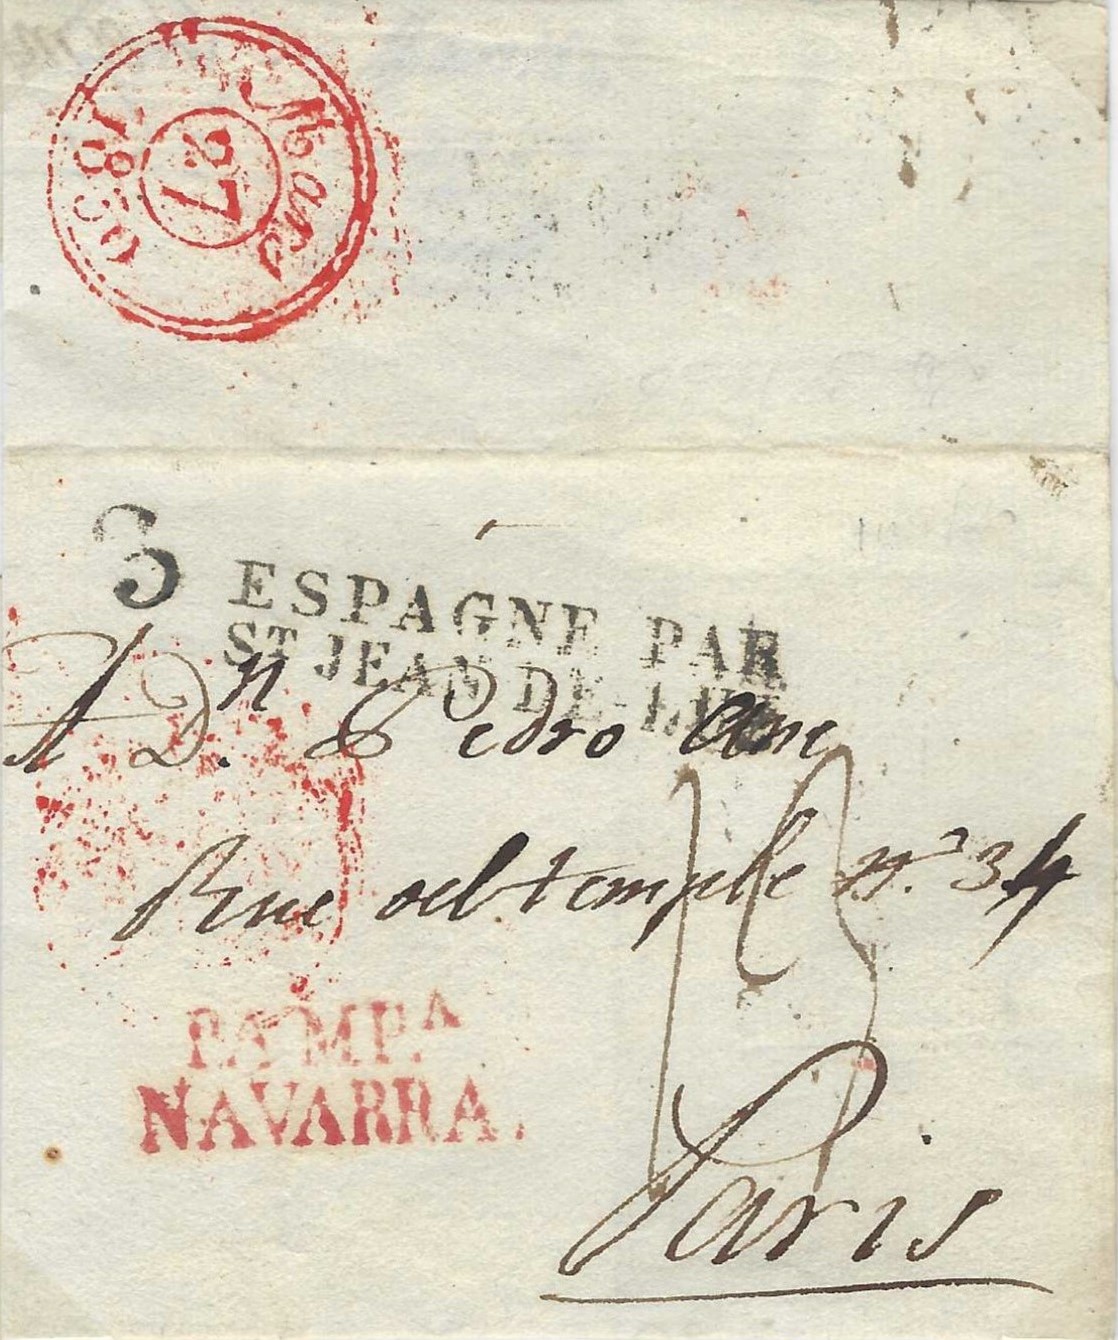 Mars
27
1830
3
ESPAGNE PAR
ST JEAN-DE-LUZ
A Dn. Pedro
Rue del temple n.º 34
PAMP.A
NAVARRA.
Paris